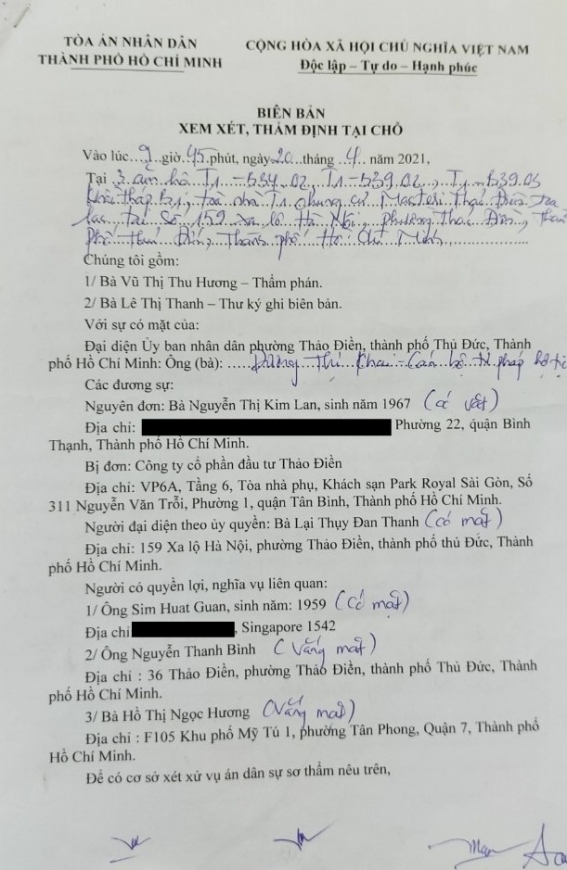 TÒA ÁN NHÂN DÂN
THÀNH PHỐ HỒ CHÍ MINH
CỘNG HÒA XÃ HỘI CHỦ NGHĨA VIỆT NAM
Độc lập – Tự do – Hạnh phúc
BIÊN BẢN
XEM XÉT, THẨM ĐỊNH TẠI CHỖ
Vào lúc 9 giờ 45 phút, ngày 20 tháng 4 năm 2021,
Tại 3 căn hộ T1 – B34.02, T1 – B39.02, T1 – B39.03
Khối tháp B1, tòa nhà T1 chung cư Masteri Thảo Điền tọa
lạc tại số 159 xa lộ Hà Nội, phường Thảo Điền, thành
phố Thủ Đức, Thành phố Hồ Chí Minh
Chúng tôi gồm:
1/ Bà Vũ Thị Thu Hương – Thẩm phán.
2/ Bà Lê Thị Thanh – Thư ký ghi biên bản.
Với sự có mặt của:
Đại diện Ủy ban nhân dân phường Thảo Điền, thành phố Thủ Đức, Thành
phố Hồ Chí Minh: Ông (bà): Thị – Cán bộ tư pháp hộ tịch
Các đương sự:
Nguyên đơn: Bà Nguyễn Thị Kim Lan, sinh năm 1967
Địa chỉ: Phường 22, quận Bình
Thạnh, Thành phố Hồ Chí Minh.
Bị đơn: Công ty cổ phần đầu tư Thảo Điền
Địa chỉ: VP6A, Tầng 6, Tòa nhà phụ, Khách sạn Park Royal Sài Gòn, Số
311 Nguyễn Văn Trỗi, Phường 1, quận Tân Bình, Thành phố Hồ Chí Minh.
Người đại diện theo ủy quyền: Bà Lại Thụy Đan Thanh (có mặt)
Địa chỉ: 159 Xa lộ Hà Nội, phường Thảo Điền, thành phố thủ Đức, Thành
phố Hồ Chí Minh.
Người có quyền lợi, nghĩa vụ liên quan:
1/ Ông Sim Huat Guan, sinh năm: 1959 (Có mặt)
Địa chỉ , Singapore 1542
2/ Ông Nguyễn Thanh Bình (Vắng mặt)
Địa chỉ : 36 Thảo Điền, phường Thảo Điền, thành phố Thủ Đức, Thành
phố Hồ Chí Minh.
3/ Bà Hồ Thị Ngọc Hương (Vắng mặt)
Địa chỉ : F105 Khu phố Mỹ Tú 1, phường Tân Phong, Quận 7, Thành phố
Hồ Chí Minh.
Để có cơ sở xét xử vụ án dân sự sơ thẩm nêu trên,